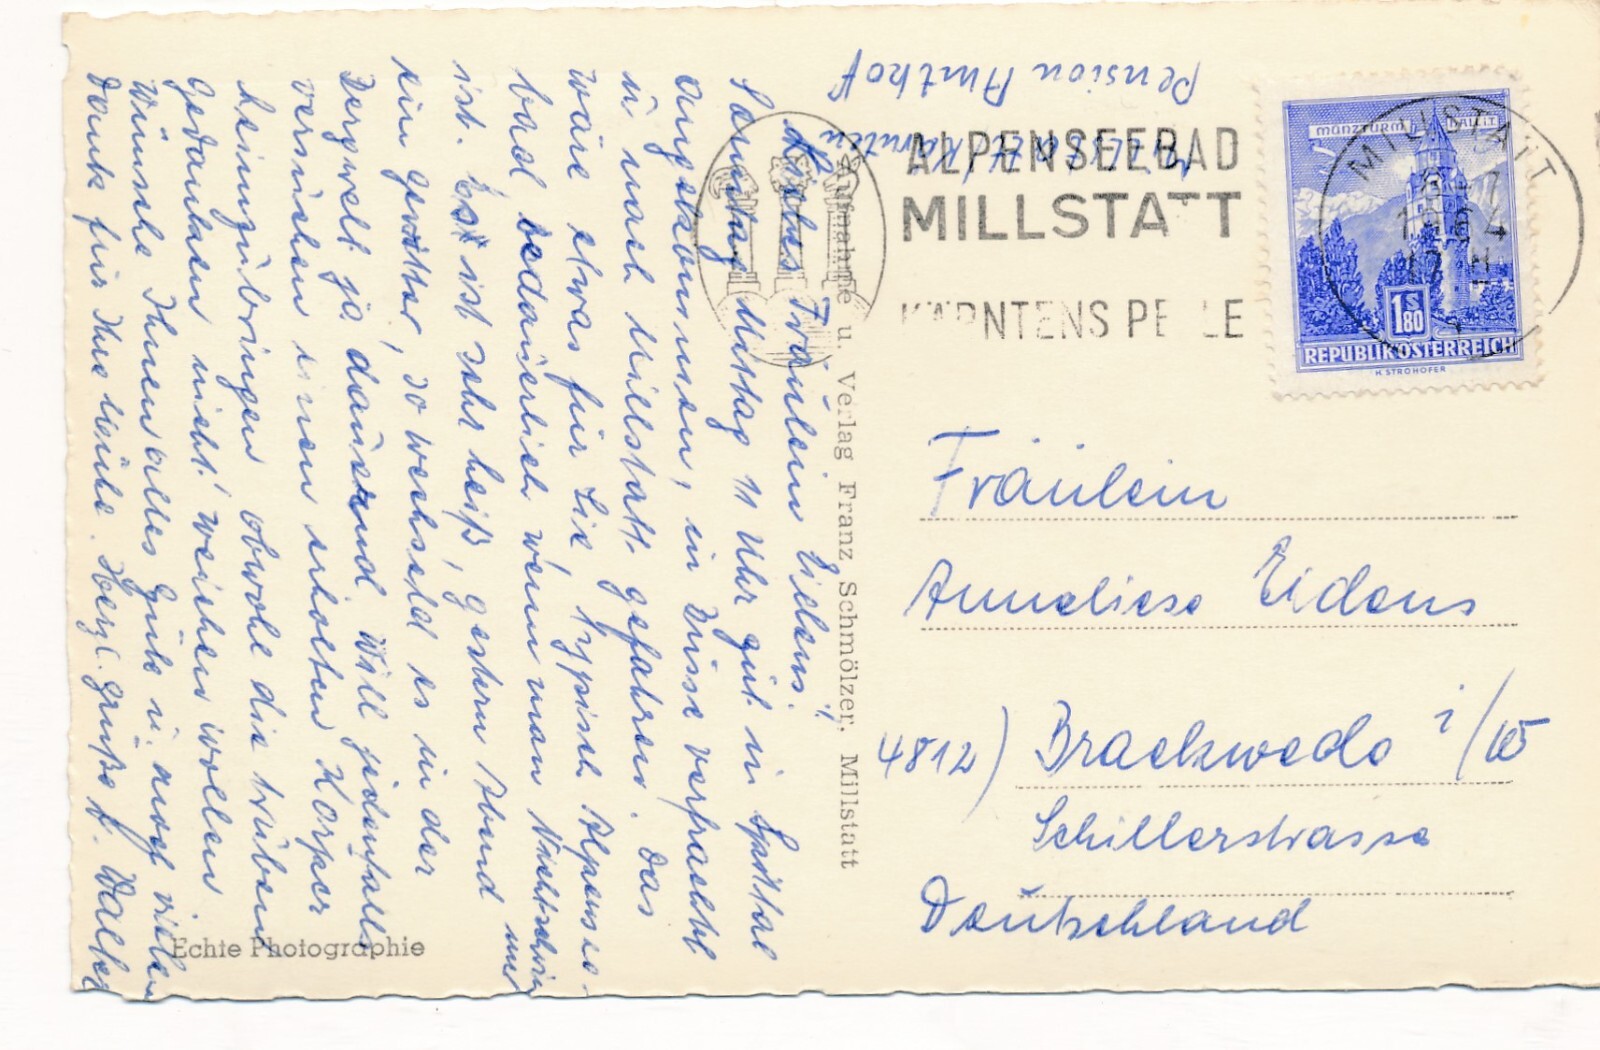 Pension Amthof
Liebes Fräulein Eidens!
Samstag Mittag 11 Uhr gut in Spittal
angekommen, in Busse verfrachtet
u. nach Millstatt gefahren. Das
wäre etwas für Sie typisch Alpensee-
bad, bedauerlich wenn man Nichtschwimmer
ist. Es ist sehr heiß, gestern Abend und
ein Gewitter, so wechseld es in der
Bergwelt ja dauernd. Will jedenfalls
versuchen einen erholten Körper
heimzubringen obwohl die trüben
Gedanken nicht weichen wollen
Wünsche Ihnen alles Gute u. auch vielen
Dank für Ihre Mühe. Herzl. Grüße
ALPENSEEBAD
MILLSTATT
KÄRNTENS PERLE
MÜNZTURM HALL I.T.
1 S 80
REPUBLIK ÖSTERREICH
H. STROHOFER
MILLSTATT
Fräulein
Anneliese Eidens
4812) Brackwede i/W
Schillerstrasse
Deutschland
Aufnahme u. Verlag Franz Schmölzer, Millstatt
Echte Photographie